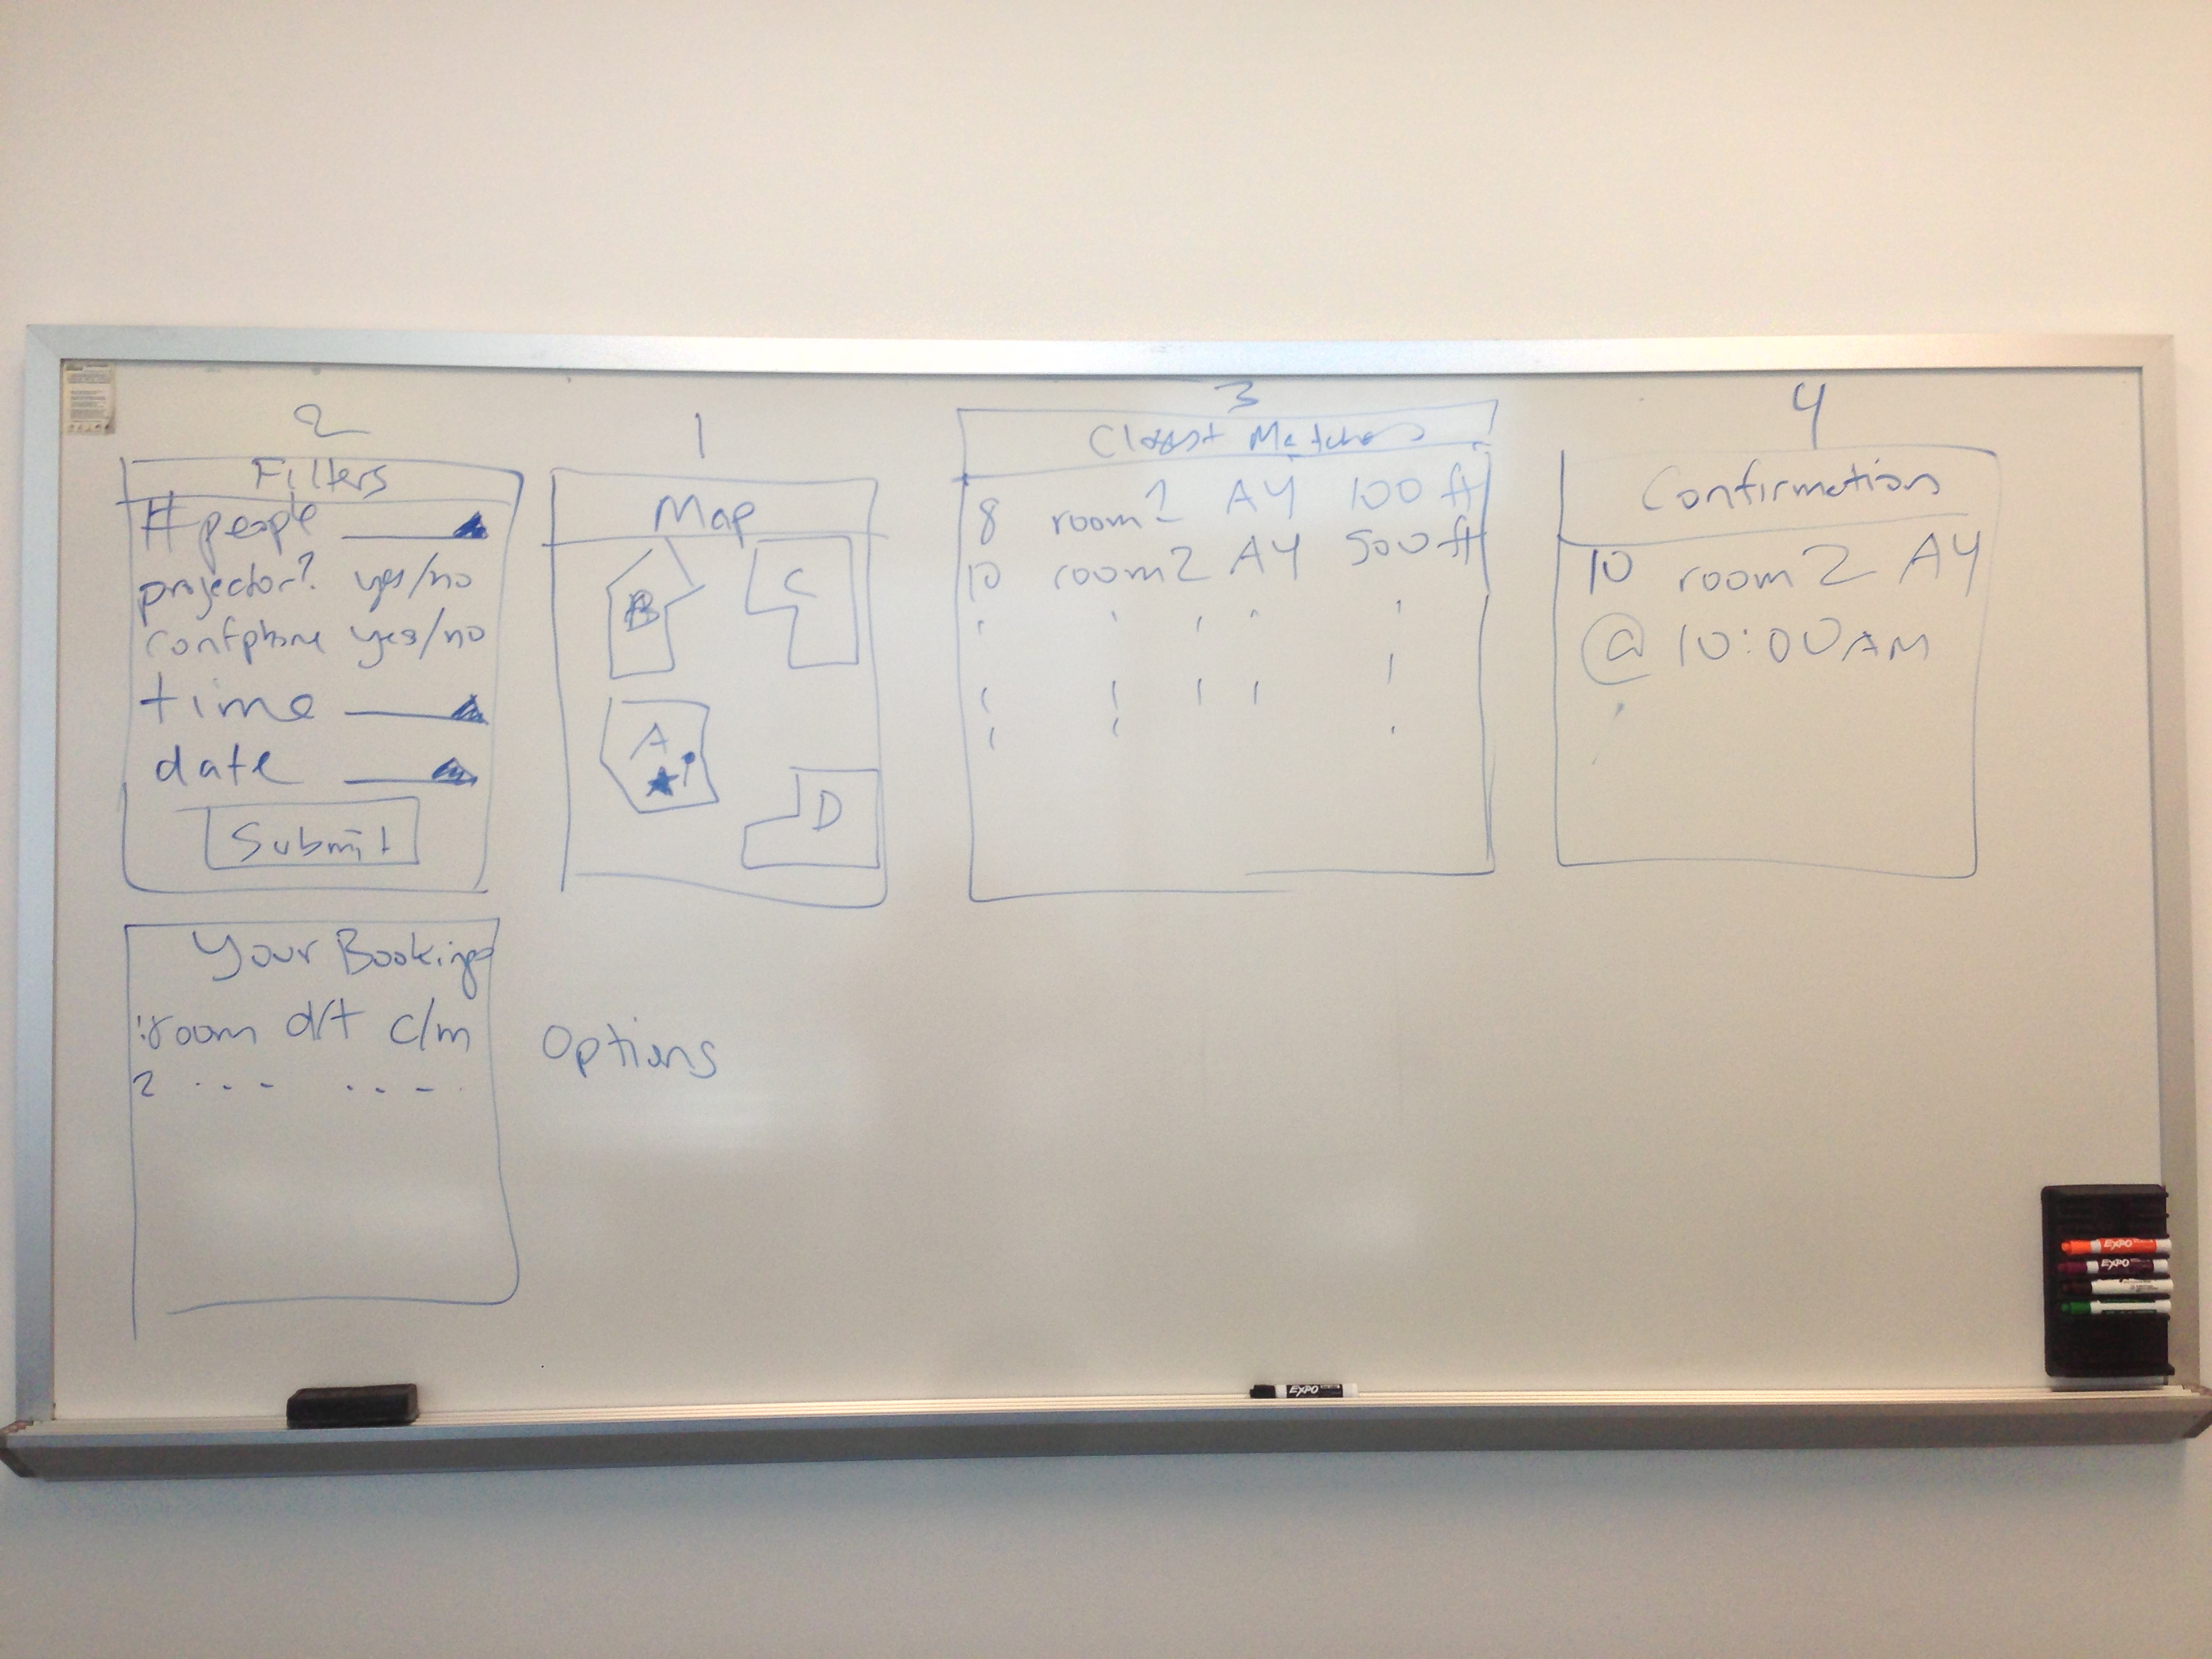 2
Filters
# people
projector? yes/no
confphone yes/no
time
date
Submit
1
Map
B
C
A
D
3
Closest Matches
8 room 1 A4 100 ft
10 room 2 A4 500 ft
4
Confirmation
10 room 2 A4
@ 10:00 AM
Your Bookings
room d/t c/m
2
Options
EXPO
EXPO
EXPO